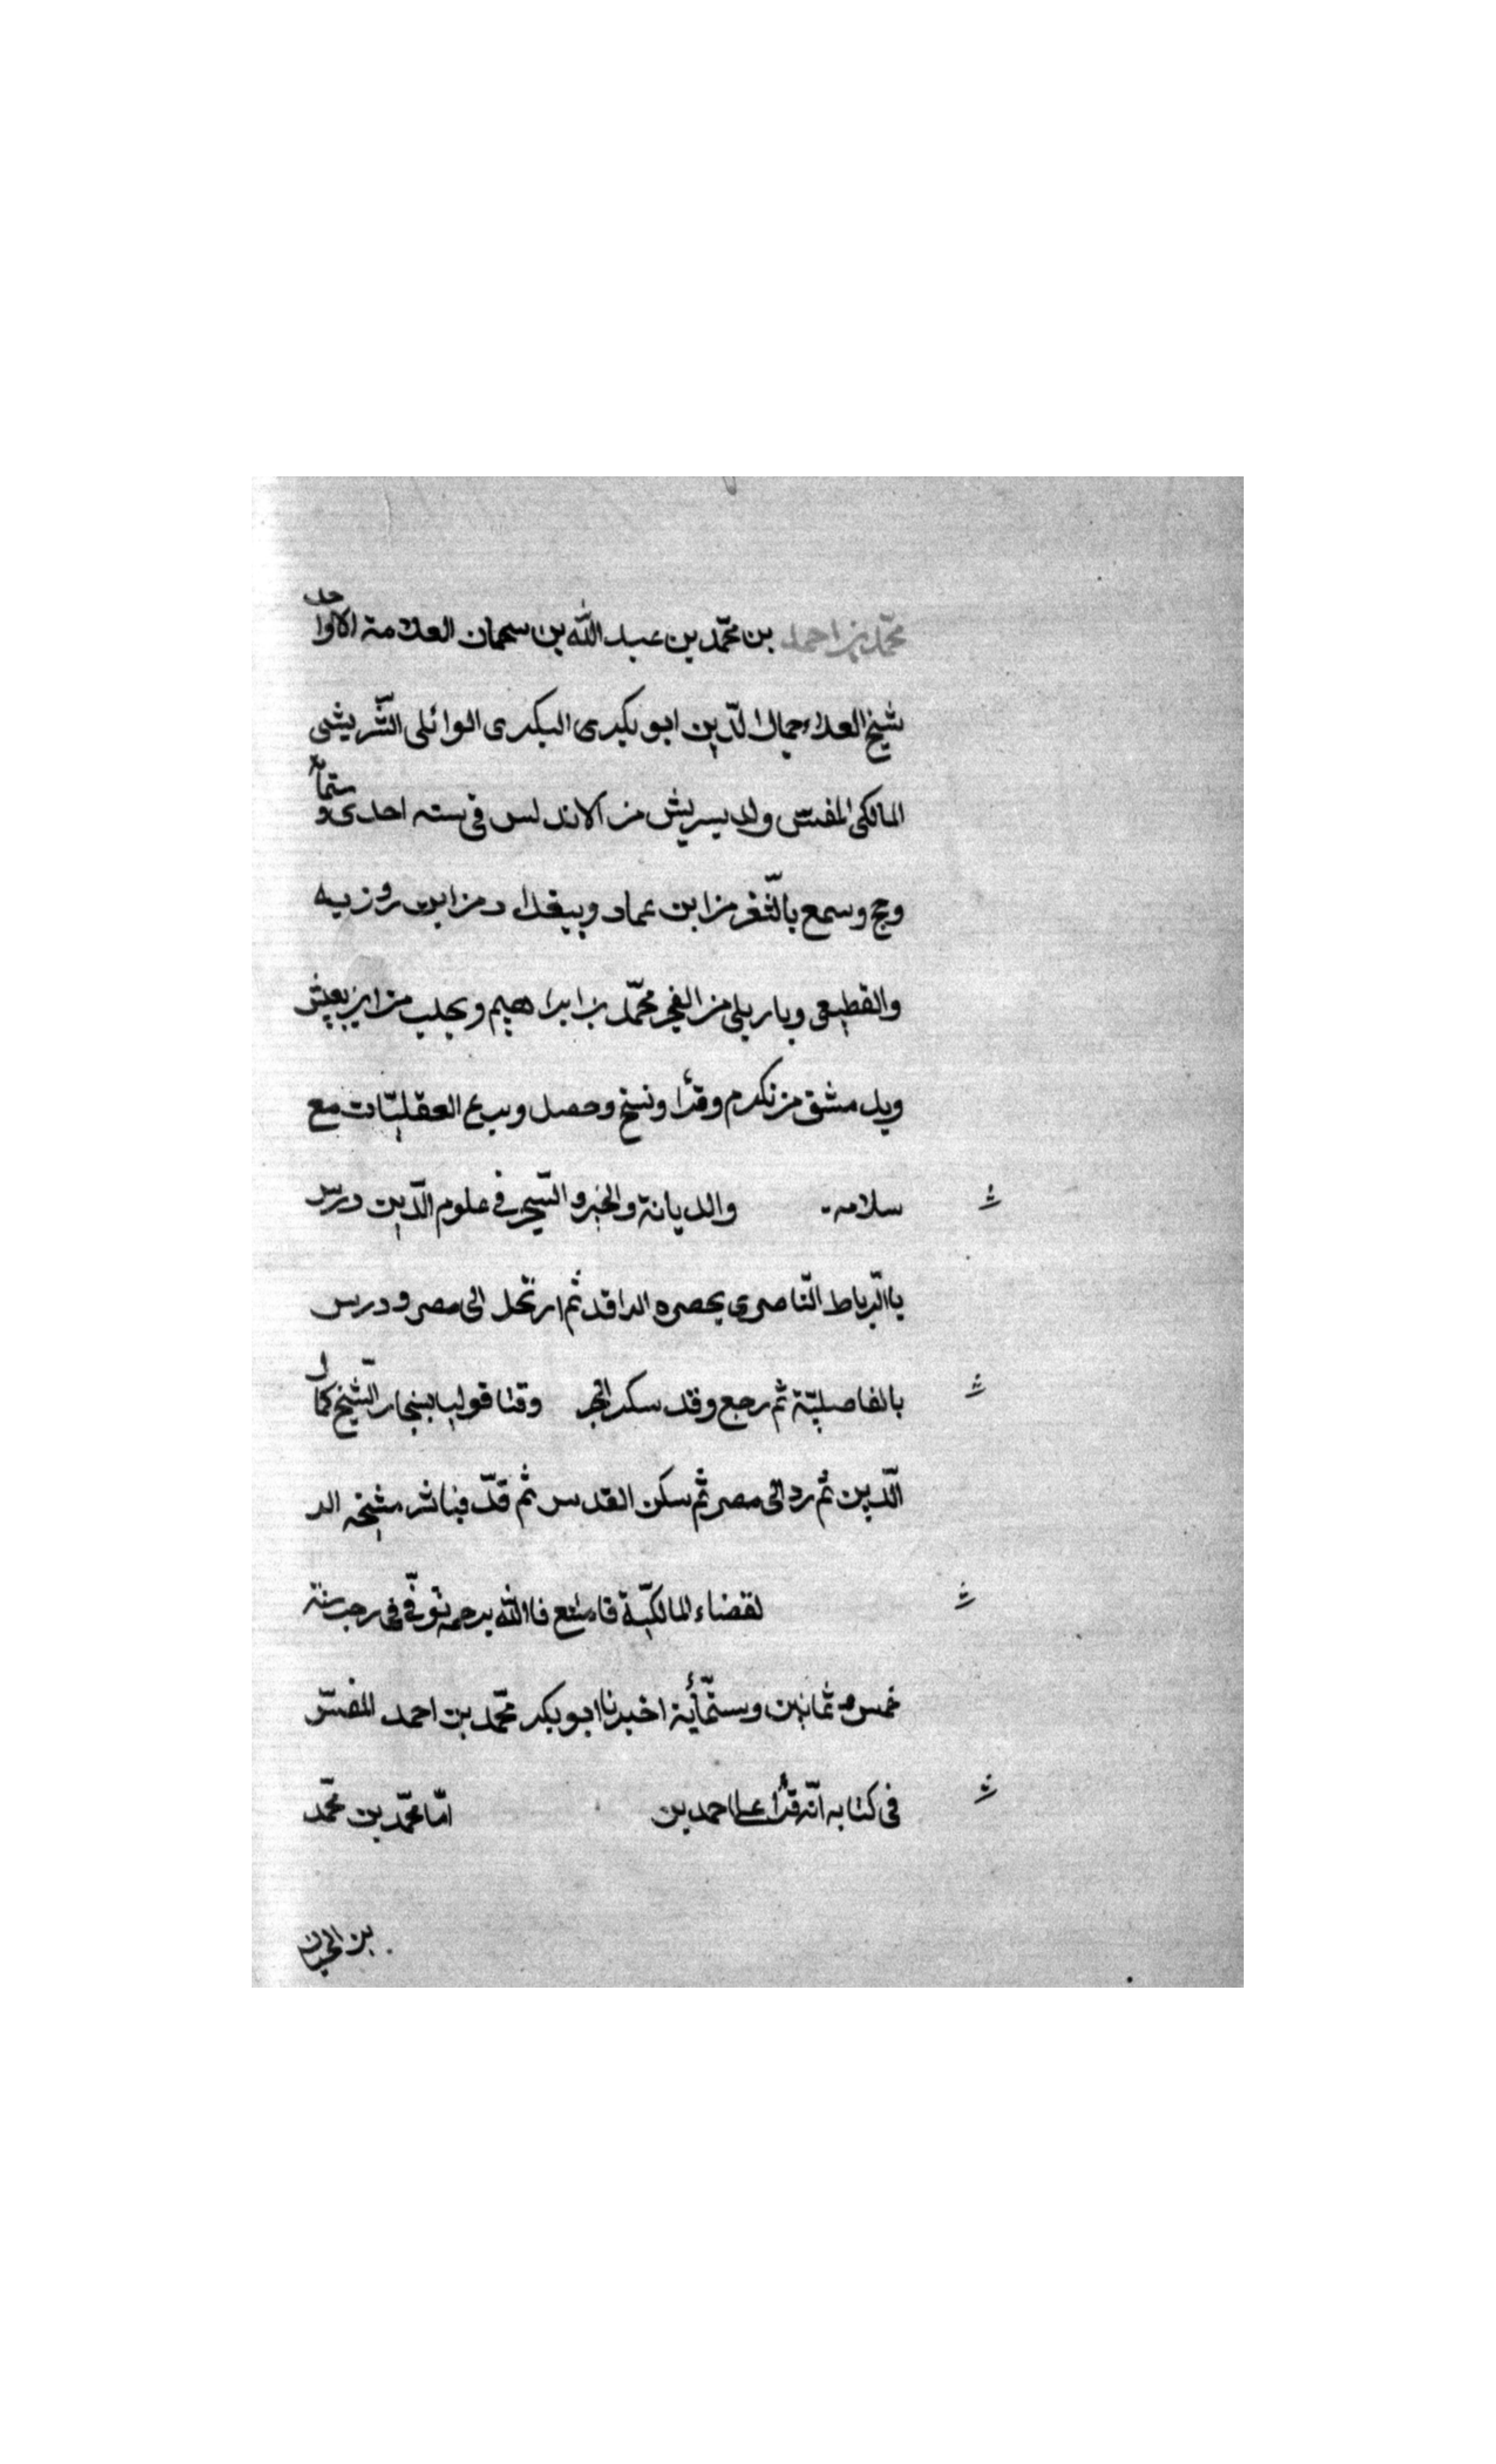 محمّد بن احمد بن محمّد بن عبد الله بن سحمان العلامة الاوحد
شيخ العلاء جمال الدّين ابو بكرى البكرى الوائلى الشّريشى
المالكى المفسّر ولد بسريش من الاندلس فى سنه احدى وستمائة
وحج وسمع بالثّغر من ابن عماد وببغداد من ابن روزبه
والقطيعى وباربلى من الفخر محمّد بن ابراهيم وبحلب من ابن يعيش
وبدمشق من نكرم وقرأ ونسخ وحصل وبرع العقليّات مع
سلامه والديانة والخبر والتبحر فى علوم الدّين درس
باالرّباط النّاصرى بحصره الداقد ثم ارتحل الى مصر ودرس
بالفاصليّة ثم رجع وقد سكر الحجر وقتا قوليا بسنجار الشّيخ كمال
الدّين ثم رد الى مصر ثم سكن القدس ثم قدّ فباشر مشيخه الد
لقضاء المالكيّة فامتنع فاالله يرحمه توفّى فى رجب سنة
خمس وثمانين وستّمأية اخبرنا ابو بكر محمّد بن احمد المفسّر
فى كتابه انّه قرأ على احمد بن امّا محمّد بن محمّد